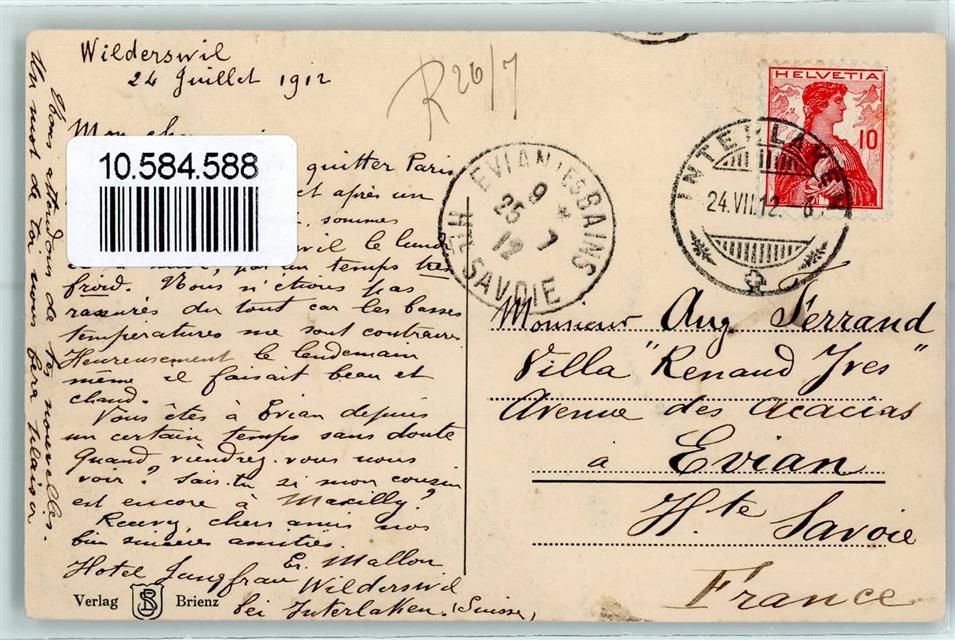 Wilderswil
24 Juillet 1912
R 26/7
Mon
10.584.588
quitter Paris
et après un
sommes
le lundi
par un temps très
froid. Nous n'étions pas
rassurés du tout car les basses
températures me sont contraires
Heureusement le lendemain
même il faisait beau et
chaud.
Vous êtes à Evian depuis
un certain temps sans doute
Quand viendrez-vous nous
voir? Sais-tu si mon cousin
est encore à Maxilly?
Recevez, chers amis nos
bien sincères amitiés
Er. Mallon
Hotel Jungfrau Wilderswil
bei Interlaken (Suisse)
Nous attendons de tes nouvelles.
Un mot de toi nous fera plaisir
Verlag SB Brienz
EVIAN LES BAINS
9 *
25 7
12
HTE SAVOIE
INTERLAKEN
24.VII.12. 6
HELVETIA
10
Monsieur Aug Ferrand
Villa "Renaud Yves"
Avenue des Acacias
à Evian
Hte Savoie
France